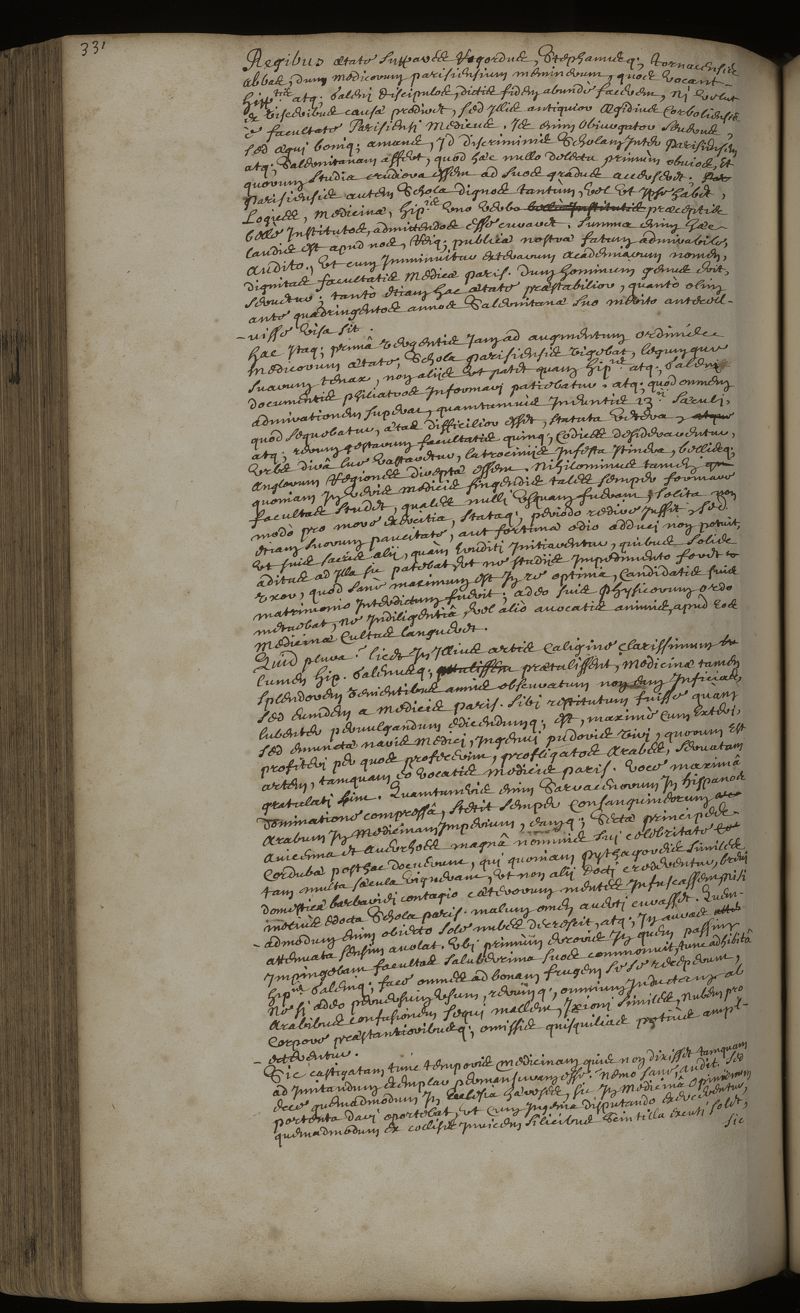 331
Regibus ætate suppares Rigordus, Stephanusq; Tornacensis
Abbas, dum medicorum parisiensium meminerunt, quos vocant
Hipp.ticos atq; Galeni discipulos, dictis fidem abunde facerem, ni velut
ex visceribus causæ prodiret, sed illis antiquior Ægidius Corboliensis
è facultate Parisiensi Medicus. Is enim obiurgator severus,
sed æqui boniq; amans, id discriminis Scholam inter Parisiensem
atq; Salernitanam affert, quod hæc nullo delectu primum obvios, et
quorum studia crudiora essent ad suos gradus accerseret.
Parisiensis autem Schola dignos tantum, vel ut ipse habet,
Logices, Medicinæ, Hip.is uno verbo præceptis
belle institutos, admittendos esse curavit. Summa enim hæc
laudis est apud nos, Reiq; publicæ nostræ fatum admirabile,
audito, ut cum imminuitur exterarum Academiarum nomen,
dignitas facultatis Medicæ Paris. dum hominum genus erit,
servetur; tanto etiam hac ætate præstabilior, quanto olim
ante quadringentos annos Salernitanæ suo merito antecel-
-uisse visa sit.
Hac itaq; primâ vergentis iam ad augmentum ordinis
Medicorum ætate, Schola parisiensis vigebat, legumque
suarum tenax, non alijs ut patet quam Hip.is atq; Galeni
documentis philiatros informari patiebatur. atq; quod omnem
admirationem superat, quamtumvis ineuntis 13.i sæculi,
quod sequebatur, ætas difficilior esset, statuta vetera,
atq; rerum gestarum facultatis quinq; Codices desiderarentur,
Urbs dirâ lue vastaretur, latrocinijs infesta itinera, bellisq;
Anglorum Regiones direptæ essent. Nihilominus tamen
quoniam in veris medicis fingendis tales semper formare
facultas studet, quales nulli usquam fuerant, solita non
modo pro more exercitia, stataq; periodo redire iussit, sed
etiam suorum paucitate, aut fortunæ odio adduci non potuit,
ut suis sacris alij, quàm eruditi initiarentur, quibus solide
aditus ad illa sic patebat ut ne studijs impedimento foret
uxor, quod sane maximum est in re optima, Candidatis suis
matrimonio interdictum fuerit; adeo suis physicorum ordo
metuebat, ne indiligentiâ, vel alio avocatis animis, apud eos
Medicinæ Cultus langueret.
Quid plura? licet in illius artis caligine clarissimum
lumen Hip. Galenusq; prætulissent, Medicinæ tamen
splendorem sequentibus annis obscuratum non inficias,
sed eumdem a Medicis Paris. sibi restitutum fuisse quam
lubenter pervulgandum edicendumq; est, maxime cum exteri,
sed emunctæ naris Medici, ingenui pudoris viri, quorum est
profiteri per quos profecerim, profligatos Arabes, servatam
artem, tamquam eo vocatis Medicis paris. voce maxima
gratulati sint. Quamtumvis enim Sarracenorum in Hispanos
dominatione compressâ, stetit semper consanguineorum
Arabum in Medicinam imperium, eamq; Sectæ principes
Avicenna et Averrhoes magnâ nominis sui celebritate
Cordubæ posthac docuerunt, qui quoniam pythagoreis similes
tam multa sæcula viguerant, ut non alij docti crederentur, brevi
domesticæ barbariei contagio cæterorum mentes infuscassent, nisi
melius edocta Schola paris. malum omen averti curasset. Quem-
-admodum enim obiecto sole nubes decrescit, atq; in auras
attenuata sensim avolat. Ubi primum errores in quem passim
impingebant facultas saluberrima suos commonuit, tunc adhibitâ
Hip.is Galeniq; face omnes ad bonam frugem se se receperunt,
Ne si adeo perversum usum, rerumq; omnium inductam ab
Arabibus confusionem sequi mallent, Ixioni similes, nubem pro
corpore præstantioribusq; omissis quisquilias potius ample-
-cterentur.
Sic castigatam tunc temporis medicinam quis non dixisset tamquam
ad imitandum exemplar permansuram esse. Nemo sane audit. Sed
ecce quemadmodum in Ecclesia hæreses, sic in Medicina opinionum
portenta dari oportebat, ut cum ingenia disputando exercerentur,
quemadmodum ex collisis invicem silicibus scintilla excuti solet,
sic